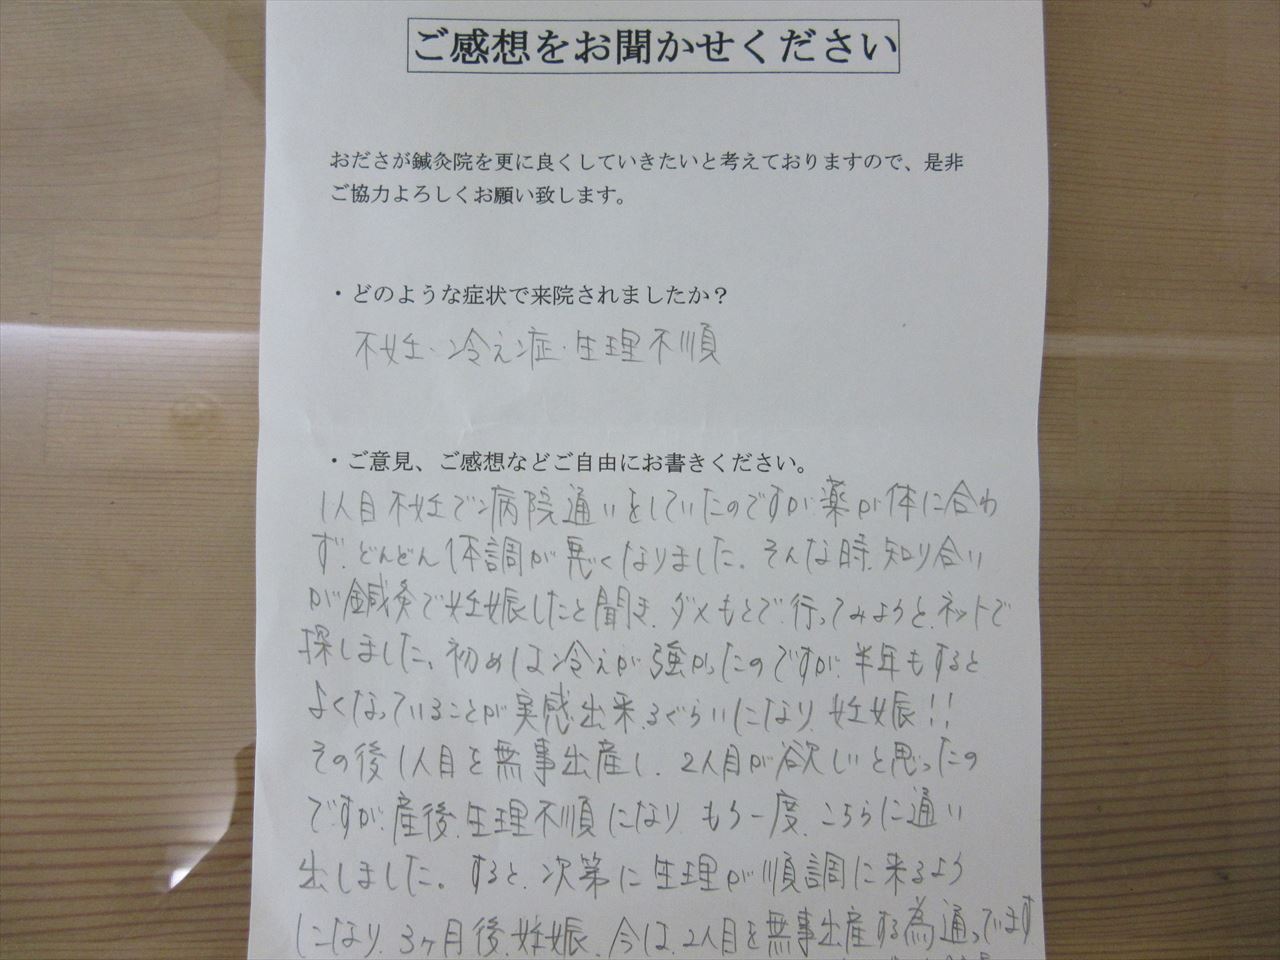 ご感想をお聞かせください
おださが鍼灸院を更に良くしていきたいと考えておりますので、是非
ご協力よろしくお願い致します。
・どのような症状で来院されましたか？
不妊・冷え症・生理不順
・ご意見、ご感想などご自由にお書きください。
1人目不妊で病院通いをしていたのですが薬が体に合わ
ず、どんどん体調が悪くなりました。そんな時、知り合い
が鍼灸で妊娠したと聞き、ダメもとで行ってみようと、ネットで
探しました。初めは冷えが強かったのですが、半年もすると
よくなっていることが実感出来るぐらいになり、妊娠!!
その後1人目を無事出産し、2人目が欲しいと思ったの
ですが、産後、生理不順になり、もう一度、こちらに通い
出しました。すると、次第に生理が順調に来るよう
になり、3ヶ月後、妊娠、今は、2人目を無事出産する為通っています